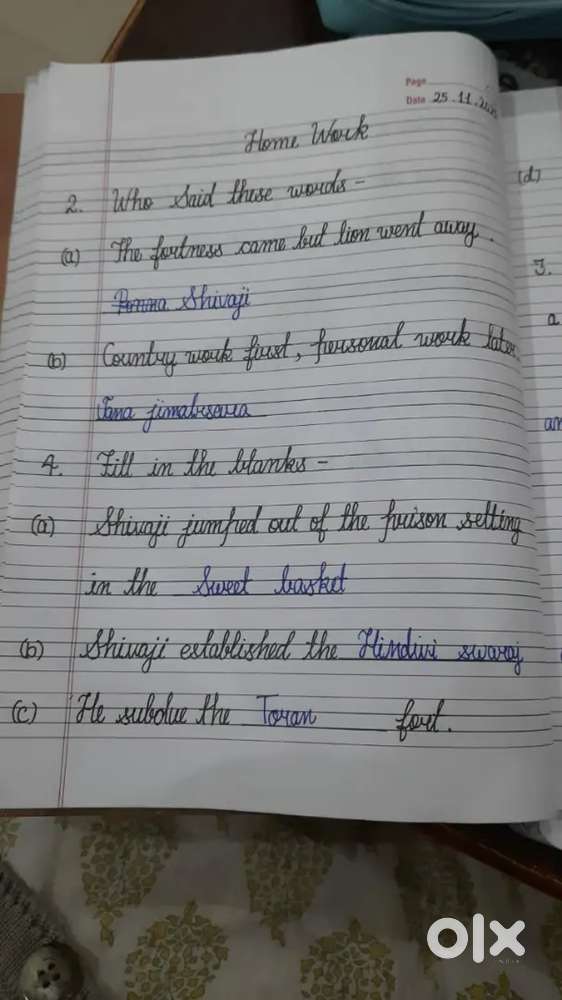 Page
Date 25.11.202
Home Work
2. Who Said these words -
(a) The fortness came but lion went away.
Shivaji
(b) Country work first, personal work later.
Tana jimalusura
4. Fill in the blanks -
(a) Shivaji jumped out of the prison setting
in the Sweet basket
(b) Shivaji established the Hindivi swaraj
(c) He subdue the Toran fort.
(d)
3.
a
an
olx
INDIA